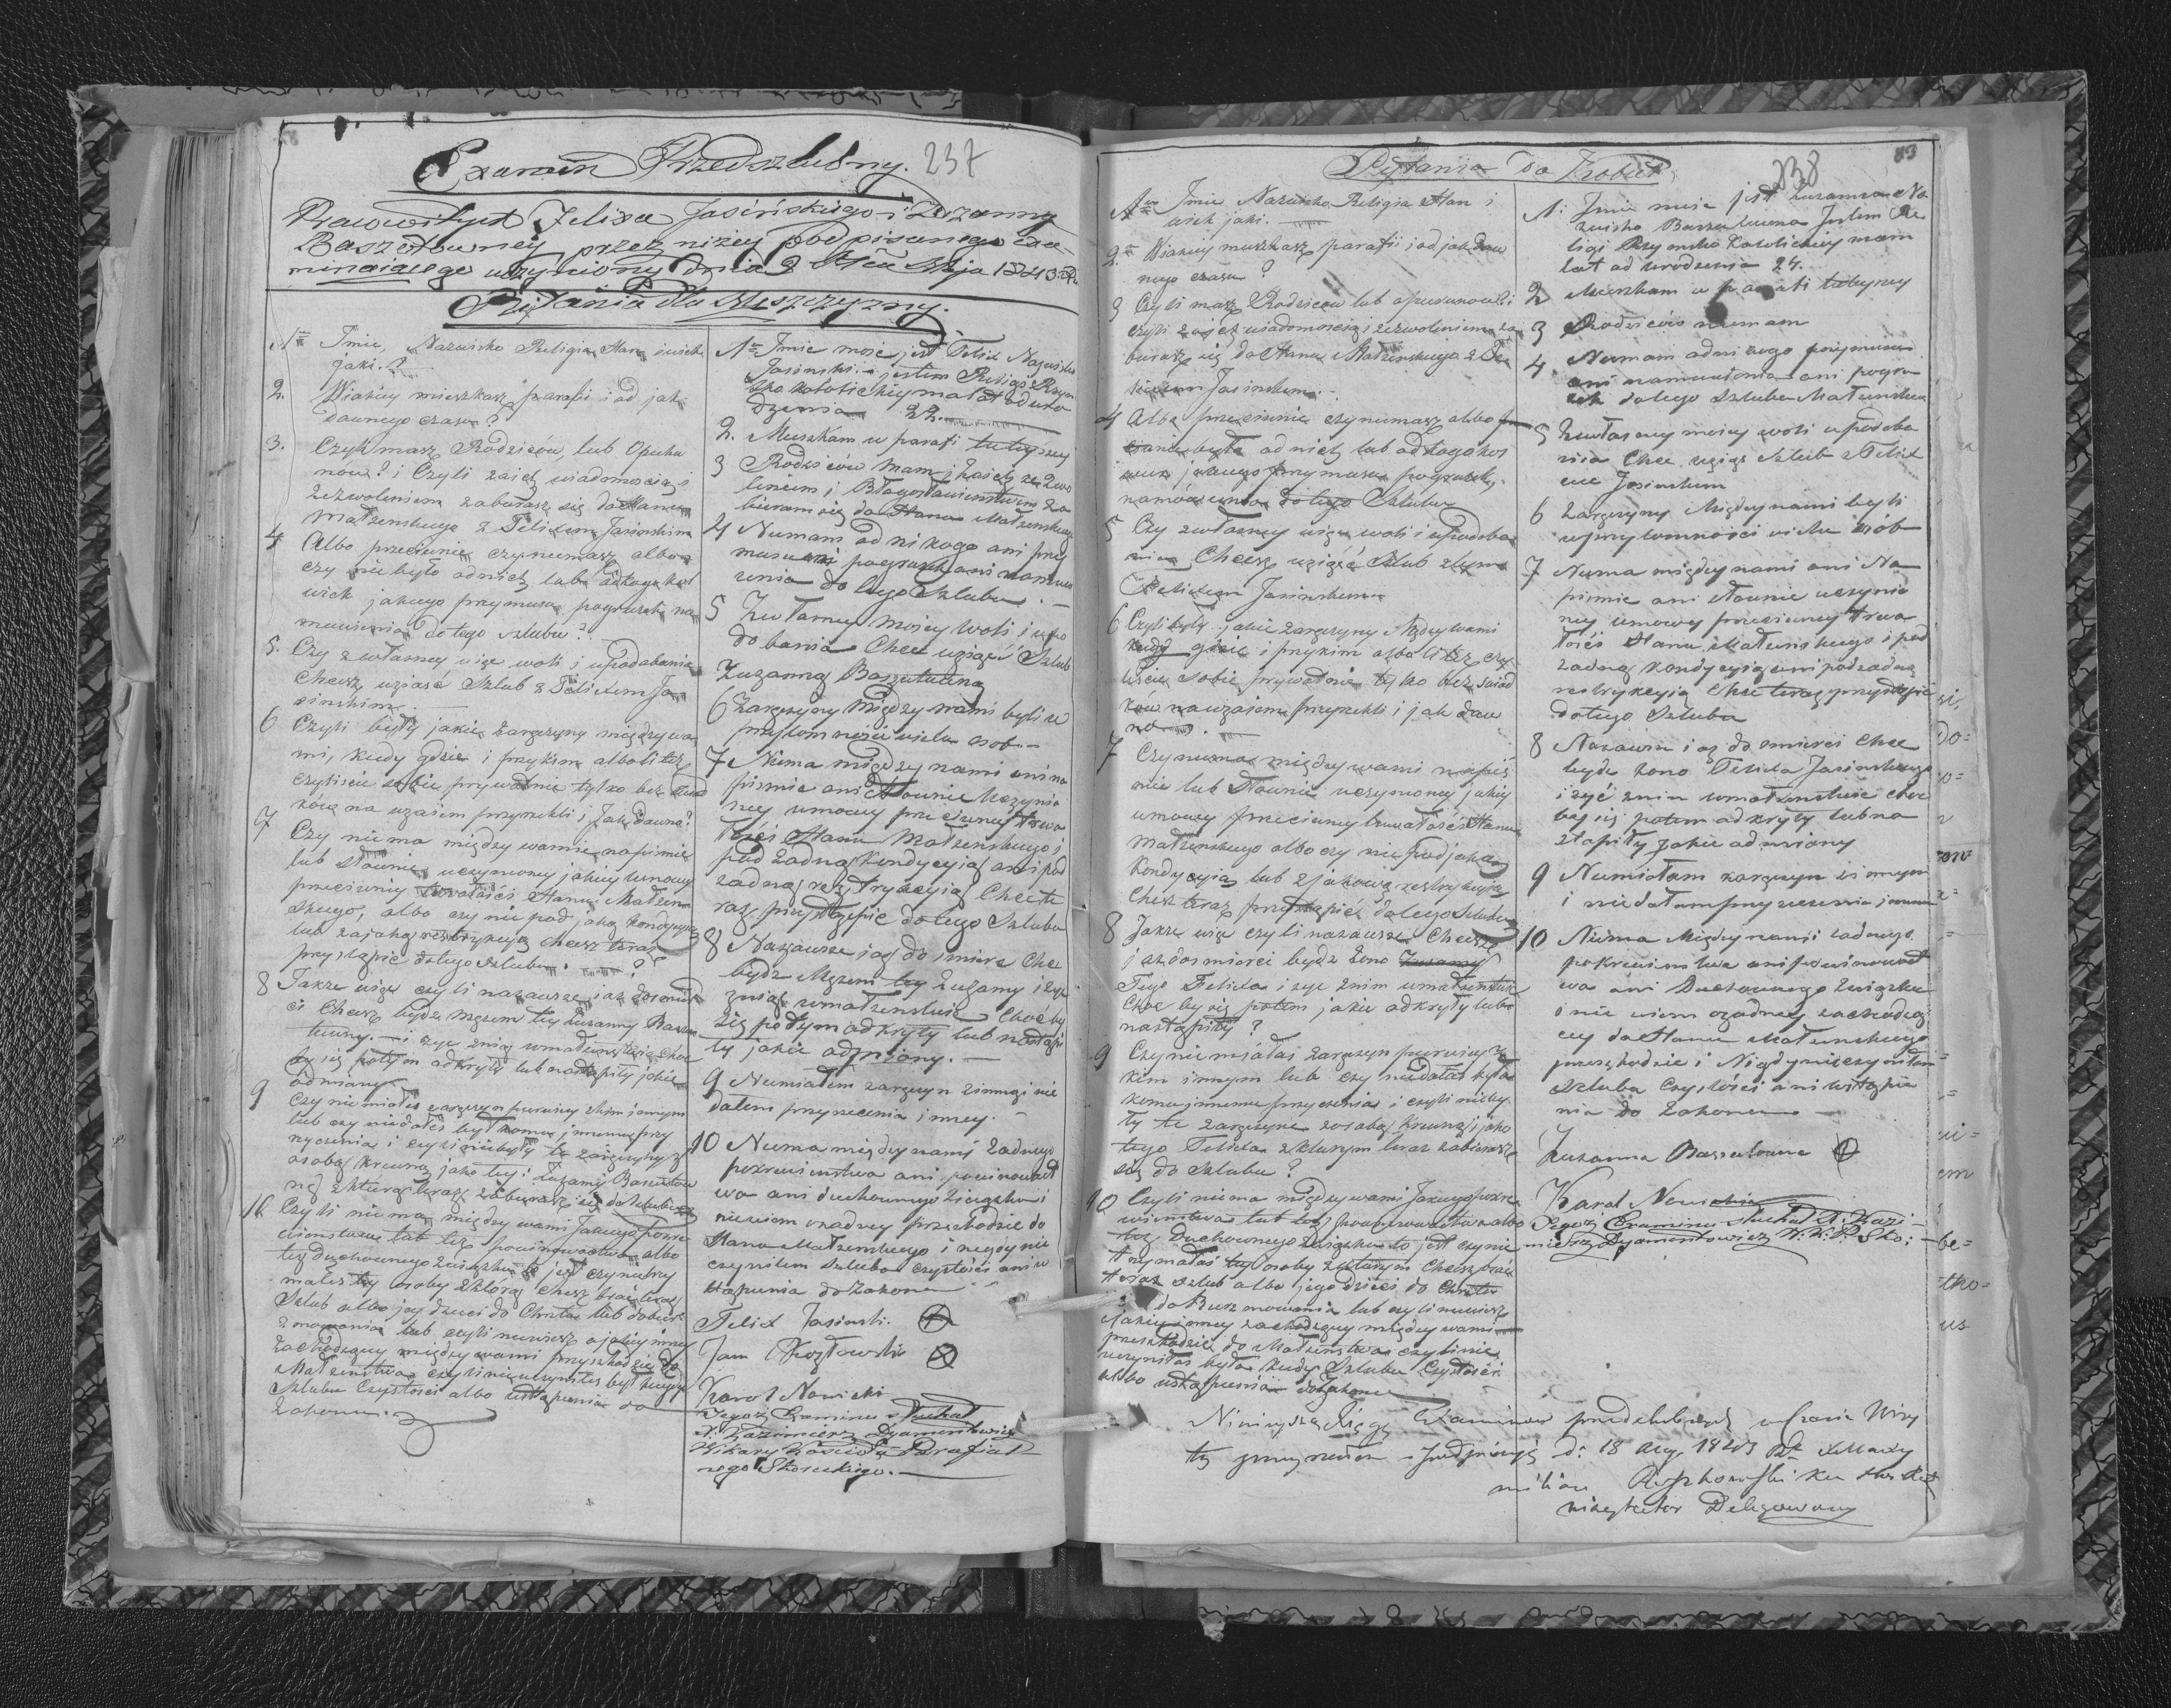 Examen Przedszlubny. 237
Pracowitych Felixa Jasińskiego i Zuzanny
Baszutowney przez niżey podpisanego exa-
minaiącego uczyniony dnia 2 Mca Maja 1843
Pytania dla Męszczyzny.
1. Imie, Nazwisko Religia Stan i wiek
jaki.?
2. Wiakiey mieszkasz parafii i od jak
dawnego czasu?
3. Czyli masz Rodziców, lub Opieku
nów? i Czyli zaich wiadomością i
zezwoleniem zabierasz się do Stanu
Małżenskiego z Felixem Jasinskim
4 Albo przeciwnie czyniemasz albo
czy nie było odnich lub odkogokol
wiek jakiego przymusu pogrużek na
mowienia do tego szlubu?
5. Czy zwłasney więc woli i upodobania
Chcesz uziąść Szlub z Felixem Ja
sinskim
6 Czyli były jakie zaręczyny międzywa
mi, kiedy gdzie i przykim alboliteż
czyliscie sobie prywatnie tylko bez świad
ków na uzaiem przyrzekli i jak dawno?
7 Czy niema między wamie napismie
lub słownie uczynioney jakiey umowy
przeciwney trwałości Stanu Małżen
skiego, albo czy nie pod jaką kondycyią
lub zajaką restrykcyią chcesz teraz
przystąpić dotego szlubu. ?
8 Jakże więc czyli nazawsze i aż dośmier
ci Chcesz bydź mężem tey Zuzanny Baszu
towny. — i żyć znią wmałżenstwie choć
by się potym odkryły lub nastąpiły jakie
odmiany
9 Czy nie miałeś zaręczyn pierwiey zkim innym
lub czy niedałeś był komu innemu przy
rzyczenia i czyli niebyły te zaręczyny z
osobą krewną jako tey: Zuzanny Baszutow
ną zktórą teraz zabierasz się do szlubu
10. Czyli niema między wami Jakiego pokre
wienstwa lub też powinowactwa albo
też duchownego związku to jest czynietrzy
małeś tey osoby zktorą chcesz brać teraz
Szlub albo jey dzieci do Chrztu lub dobierz
zmowania lub czyli niewiesz ojakiey inney
zachodzącey między wami przyszkodzie do
Małżenstwa czyli nieuczyniłeś był kiedy
Szlubu Czystości albo wstąpienia do
zakonu.
1. Imie moje jest Felix Nazwisko
Jasinski. jestem Religii Rzym
sko katolickiey mam lat od uro
dzenia 22.
2. Mieszkam w parafi tuteyszey
3 Rodziców mam i zaich zezwo
leniem i Błogosławienstwem za
bieram się do Stanu Małżenskiego
4 Niemam od nikogo ani przy
musu ani pogrużek ani namow
ienia do tego Szlubu. —
5 Zwłasney mojey woli i upo
dobania Chce uziąść Szlub
Zuzanną Baszutowną
6 Zaręczyny między nami byli w
przytomności wielu osob. —
7 Niema między nami ani na
pismie ani słownie uczynio
ney umowy przeciwney trwa
łości Stanu Małżenskiego i
pod żadną kondycyią ani pod
żadną restrykcyią Chce te
raz przystąpić do tego Szlubu
8 Nazawsze i aż do smierci Chce
bydź Mężem tey Zuzanny i żyć
znią wmałżenstwie Choćby
się potym odkryły lub nastąpi
ły jakie odmiany. —
9 Niemiałem zaręczyn zinną i nie
dałem przyrzeczenia inney. —
10 Niema między nami żadnego
pokrewienstwa ani powinowact
wa ani duchownego związku i
niewiem ożadney przeszkodzie do
Stanu Małżenskiego i nigdy nie
czyniłem szlubu czystości ani w
stąpienia do zakonu
Felix Jasinski.
Jan Kozłowski
Karol Nowicki
Tegoż Examinu słuchał
X. Kazimierz Dyamentowicz
Wikary Kościoła Parafial
nego
Pytania do Kobiet 238 83
1. Imie Nazwisko Religia Stan i
wiek jaki.
2. Wiakiey mieszkasz parafii i od jak daw
nego czasu?
3 Czyli masz Rodziców lub opiekunow? i
czyli zaich wiadomością i zezwoleniem za
bierasz się do Stanu Małżenskiego z Fe
lixem Jasinskim.
4 Albo przeciwnie czyniemasz albo
nie było od nich lub odkogokol
wiek jakiego przymusu pogrużek,
namówienia do tego Szlubu
5 Czy zwłasney więc woli i upodoba
nia Chcesz uziąść Szlub z tym
Felixem Jasinskim
6 Czyli były jakie zaręczyny między wami
kiedy gdzie i przykim alboliteż czy
liscie sobie prywatnie tylko bez świad
ków nauzajem przyrzekli i jak daw
no.
7 Czyniema między wami napis
mie lub słownie uczynioney jakiey
umowy przeciwney trwałości Stanu
Małżenskiego albo czy nie pod jaką
Kondycyią lub zjakową restrykcyią
Chcesz teraz przystąpić do tego szlubu
8 Jakże więc czyli nazawsze Chcesz
i aż dosmierci bydź żoną
Tego Felixa i żyć znim wmałżenstwie
Choć by się potem jakie odkryły lub
nastąpiły?
9 Czy nie miałaś zaręczyn pierwiey z
kim innym lub czy niedałaś była
komu innemu przyrzeczenia i czyli nieby
ły te zaręczyny zosobą krewną jako
tego Felixa zktórym teraz zabierasz
się do szlubu?
10 Czyli niema między wami Jakiego pokre
wienstwa lub też powinowactwa albo
też Duchownego związku to jest czynie
trzymałaś tey osoby zktórym chcesz brać
teraz szlub albo jego dzieci do Chrztu
do Bierzmowania lub czyli niewiesz
ojakiey inney zachodzącey między wami
przeszkodzie do Małżenstwa czyli nie
uczyniłaś była kiedy Szlubu Czystości
albo wstąpienia dozakonu
1: Imie moje jest Zuzanna Na
zwisko Baszutowna Jestem Re
ligi Rzymsko Katolickiey mam
lat od urodzenia 24.
2 Mieszkam w parafi tuteyszey
3 Rodziców niemam
4. Niemam odnikogo przymusu
ani namowienia ani pogru
żek dotego szlubu Małżenskiego
5 Zwłasney moiey woli upodoba
nia Chce uziąść szlub z Felix
em Jasinskim
6 Zaręczyny Między nami byli
wprzytomności wielu osób
7 Niema między nami ani Na
pismie ani słownie uczynio
ney umowy przeciwney trwa
łości Stanu Małżenskiego i pod
żadną kondycyią ani pod żadną
restrykcyią Chce teraz przystąpić
dotego szlubu
8 Nazawsze i aż do smierci Chce
bydź żono Felixa Jasinskiego
i żyć znim wmałżenstwie choć
by się potem odkryły lub na
stąpiły jakie odmiany
9 Niemiałam zaręczyn zinnym
i niedałam przyrzeczenia innemu
10 Niema Między nami żadnego
pokrewienstwa ani powinowact
wa ani Duchownego związku
i nie wiem ożadney zachodzą
cey do Stanu Małżenskiego
przeszkodzie i Nigdy nieczyniłam
szlubu Czystości ani wstąpie
nia do zakonu —
Zuzanna Baszutowna
Karol Nowicki
Tegoż Examinu słuchał X. Kazi-
mierz Dyamentowicz W. K. P.
Niniejszą Xięgę Examinów przedślubnych w czasie Wizy
ty d: 18 Aug. 1843
Delegowany